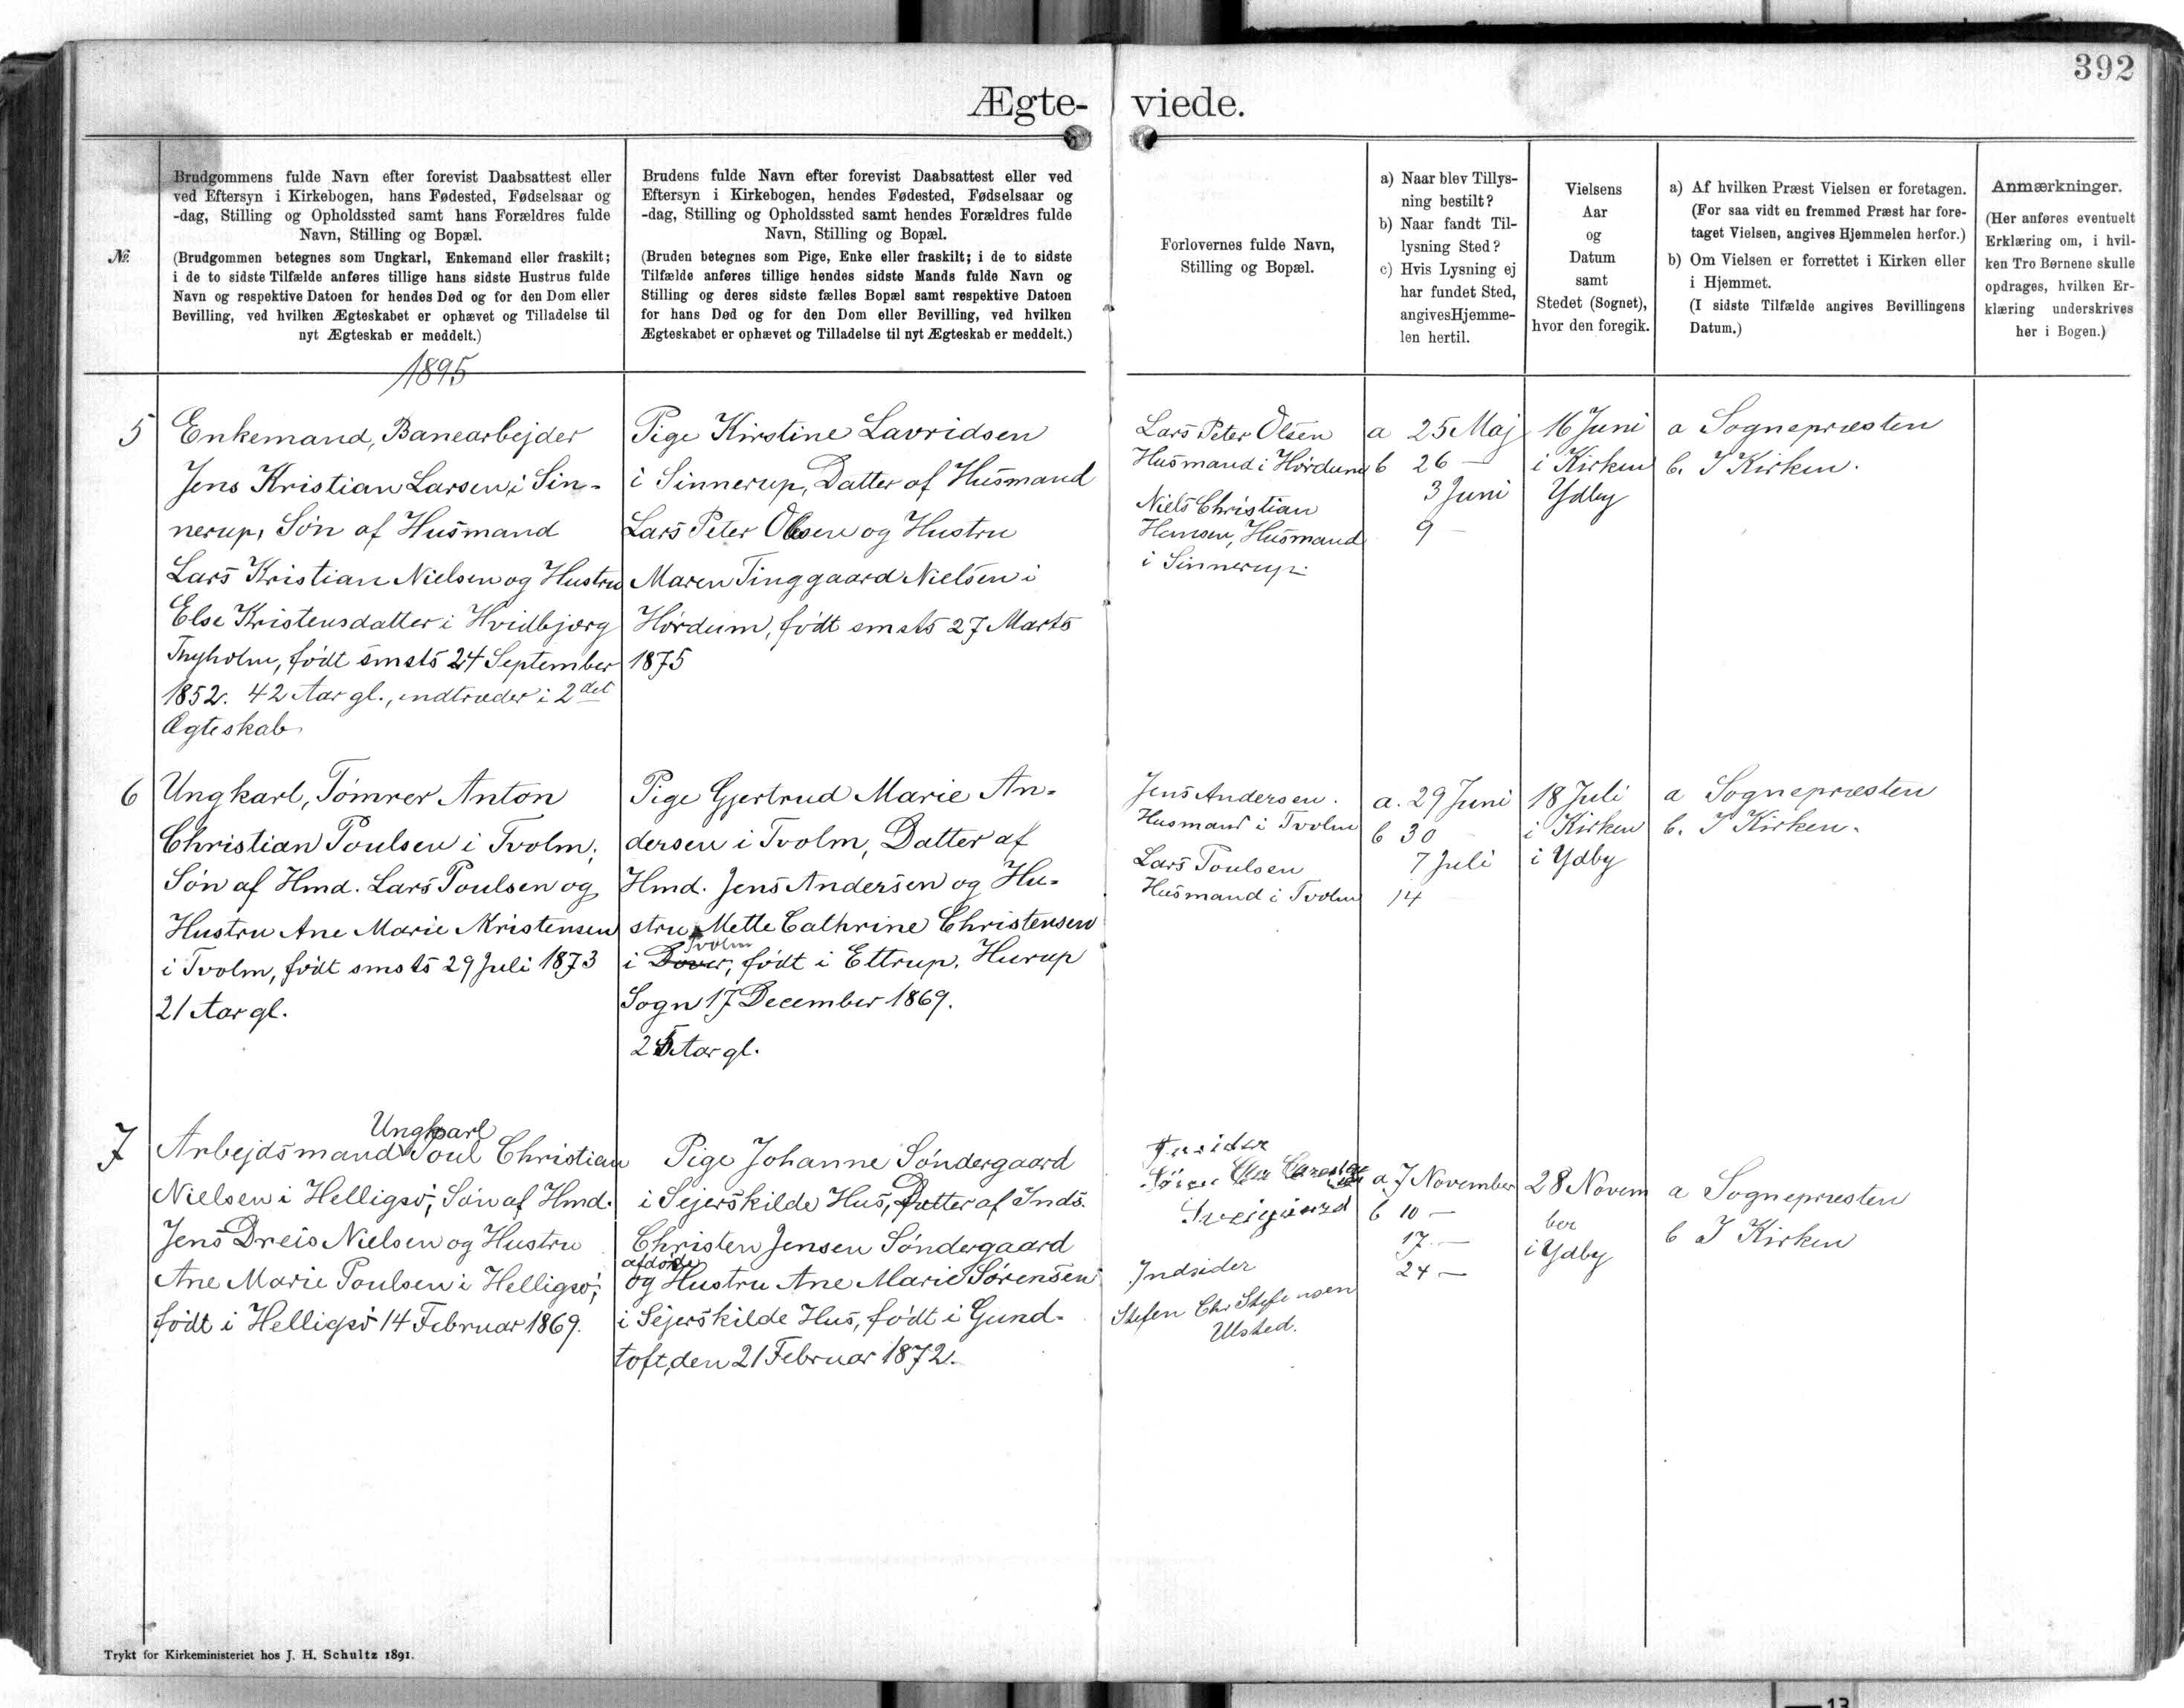 392
Ægte- viede.
№.
Brudgommens fulde Navn efter forevist Daabsattest eller
ved Eftersyn i Kirkebogen, hans Fødested, Fødselsaar og
-dag, Stilling og Opholdssted samt hans Forældres fulde
Navn, Stilling og Bopæl.
(Brudgommen betegnes som Ungkarl, Enkemand eller fraskilt;
i de to sidste Tilfælde anføres tillige hans sidste Hustrus fulde
Navn og respektive Datoen for hendes Død og for den Dom eller
Bevilling, ved hvilken Ægteskabet er ophævet og Tilladelse til
nyt Ægteskab er meddelt.)
Brudens fulde Navn efter forevist Daabsattest eller ved
Eftersyn i Kirkebogen, hendes Fødested, Fødselsaar og
-dag, Stilling og Opholdssted samt hendes Forældres fulde
Navn, Stilling og Bopæl.
(Bruden betegnes som Pige, Enke eller fraskilt; i de to sidste
Tilfælde anføres tillige hendes sidste Mands fulde Navn og
Stilling og deres sidste fælles Bopæl samt respektive Datoen
for hans Død og for den Dom eller Bevilling, ved hvilken
Ægteskabet er ophævet og Tilladelse til nyt Ægteskab er meddelt.)
Forlovernes fulde Navn,
Stilling og Bopæl.
a) Naar blev Tillys-
ning bestilt?
b) Naar fandt Til-
lysning Sted?
c) Hvis Lysning ej
har fundet Sted,
angivesHjemme-
len hertil.
Vielsens
Aar
og
Datum
samt
Stedet (Sognet),
hvor den foregik.
a) Af hvilken Præst Vielsen er foretagen.
(For saa vidt en fremmed Præst har fore-
taget Vielsen, angives Hjemmelen herfor.)
b) Om Vielsen er forrettet i Kirken eller
i Hjemmet.
(I sidste Tilfælde angives Bevillingens
Datum.)
Anmærkninger.
(Her anføres eventuelt
Erklæring om, i hvil-
ken Tro Børnene skulle
opdrages, hvilken Er-
klæring underskrives
her i Bogen.)
1895
5
Enkemand, Banearbejder
Jens Kristian Larsen i Sin-
nerup, Søn af Husmand
Lars Kristian Nielsen og Hustru
Else Kristensdatter i Hvidbjærg
Thyholm, født smsts 24 September
1852. 42 Aar gl., indtræder i 2det
Ægteskab
Pige Kirstine Lavridsen
i Sinnerup, Datter af Husmand
Lars Peter Olesen og Hustru
Maren Tinggaard Nielsen i
Hørdum, født smsts 27 Marts
1875
Lars Peter Olsen
Husmand i Hørdum
Niels Christian
Hansen, Husmand
i Sinnerup
a 25 Maj
b 26 —
3 Juni
9 —
16 Juni
i Kirken
Ydby
a Sognepræsten
b. I Kirken.
6
Ungkarl, Tømrer Anton
Christian Poulsen i Tvolm,
Søn af Hmd. Lars Poulsen og
Hustru Ane Marie Kristensen
i Tvolm, født smsts 29 Juli 1873
21 Aar gl.
Pige Gjertrud Marie An-
dersen i Tvolm, Datter af
Hmd. Jens Andersen og Hu-
stru Mette Cathrine Christensen
Tvolm
i Dover, født i Ettrup, Hurup
Sogn 17 December 1869.
25 Aar gl.
Jens Andersen.
Husmand i Tvolm
Lars Poulsen
Husmand i Tvolm
a. 29 Juni
b 30 —
7 Juli
14 —
18 Juli
i Kirken
i Ydby
a Sognepræsten
b. I Kirken.
7
Ungkarl
Arbejdsmand Poul Christian
Nielsen i Helligsø, Søn af Hmd.
Jens Dreis Nielsen og Hustru
Ane Marie Poulsen i Helligsø,
født i Helligsø 14 Februar 1869.
Pige Johanne Søndergaard
i Sejerskilde Hus, Datter af Inds.
Christen Jensen Søndergaard
afdøde
og Hustru Ane Marie Sørensen
i Sejerskilde Hus, født i Gund-
toft, den 21 Februar 1872.
Indsider
Stefen Chr Stefensen
Ulsted.
a 7 November
b 10 —
17. —
24 —
28 Novem
ber
i Ydby
a Sognepræsten
b I Kirken
Trykt for Kirkeministeriet hos J. H. Schultz 1891.
13